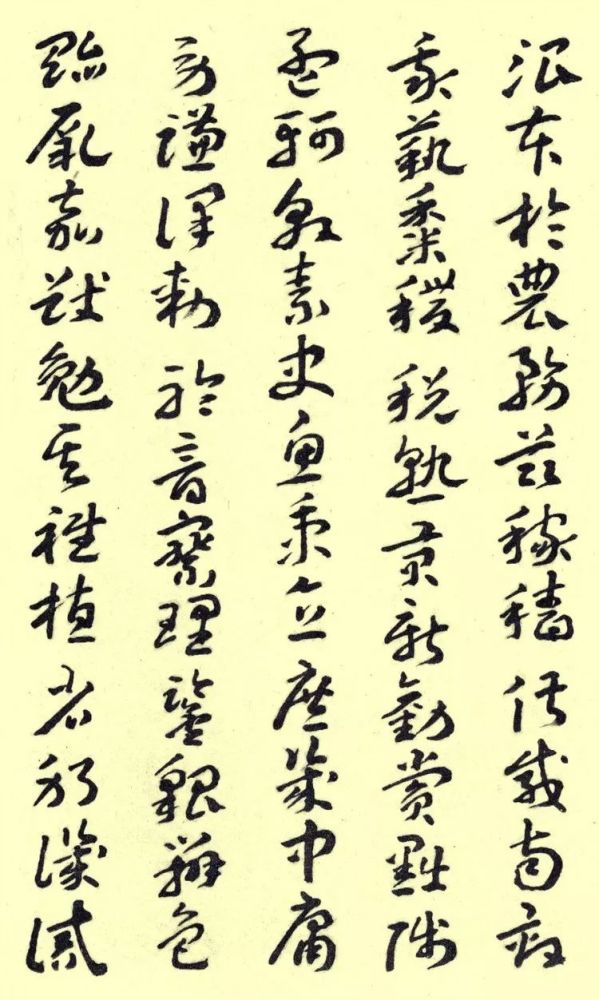 治本於農務茲稼穡俶載南畝
我藝黍稷稅熟貢新勸賞黜陟
孟軻敦素史魚秉直庶幾中庸
勞謙謹敕聆音察理鑒貌辨色
貽厥嘉猷勉其祗植省躬譏誡